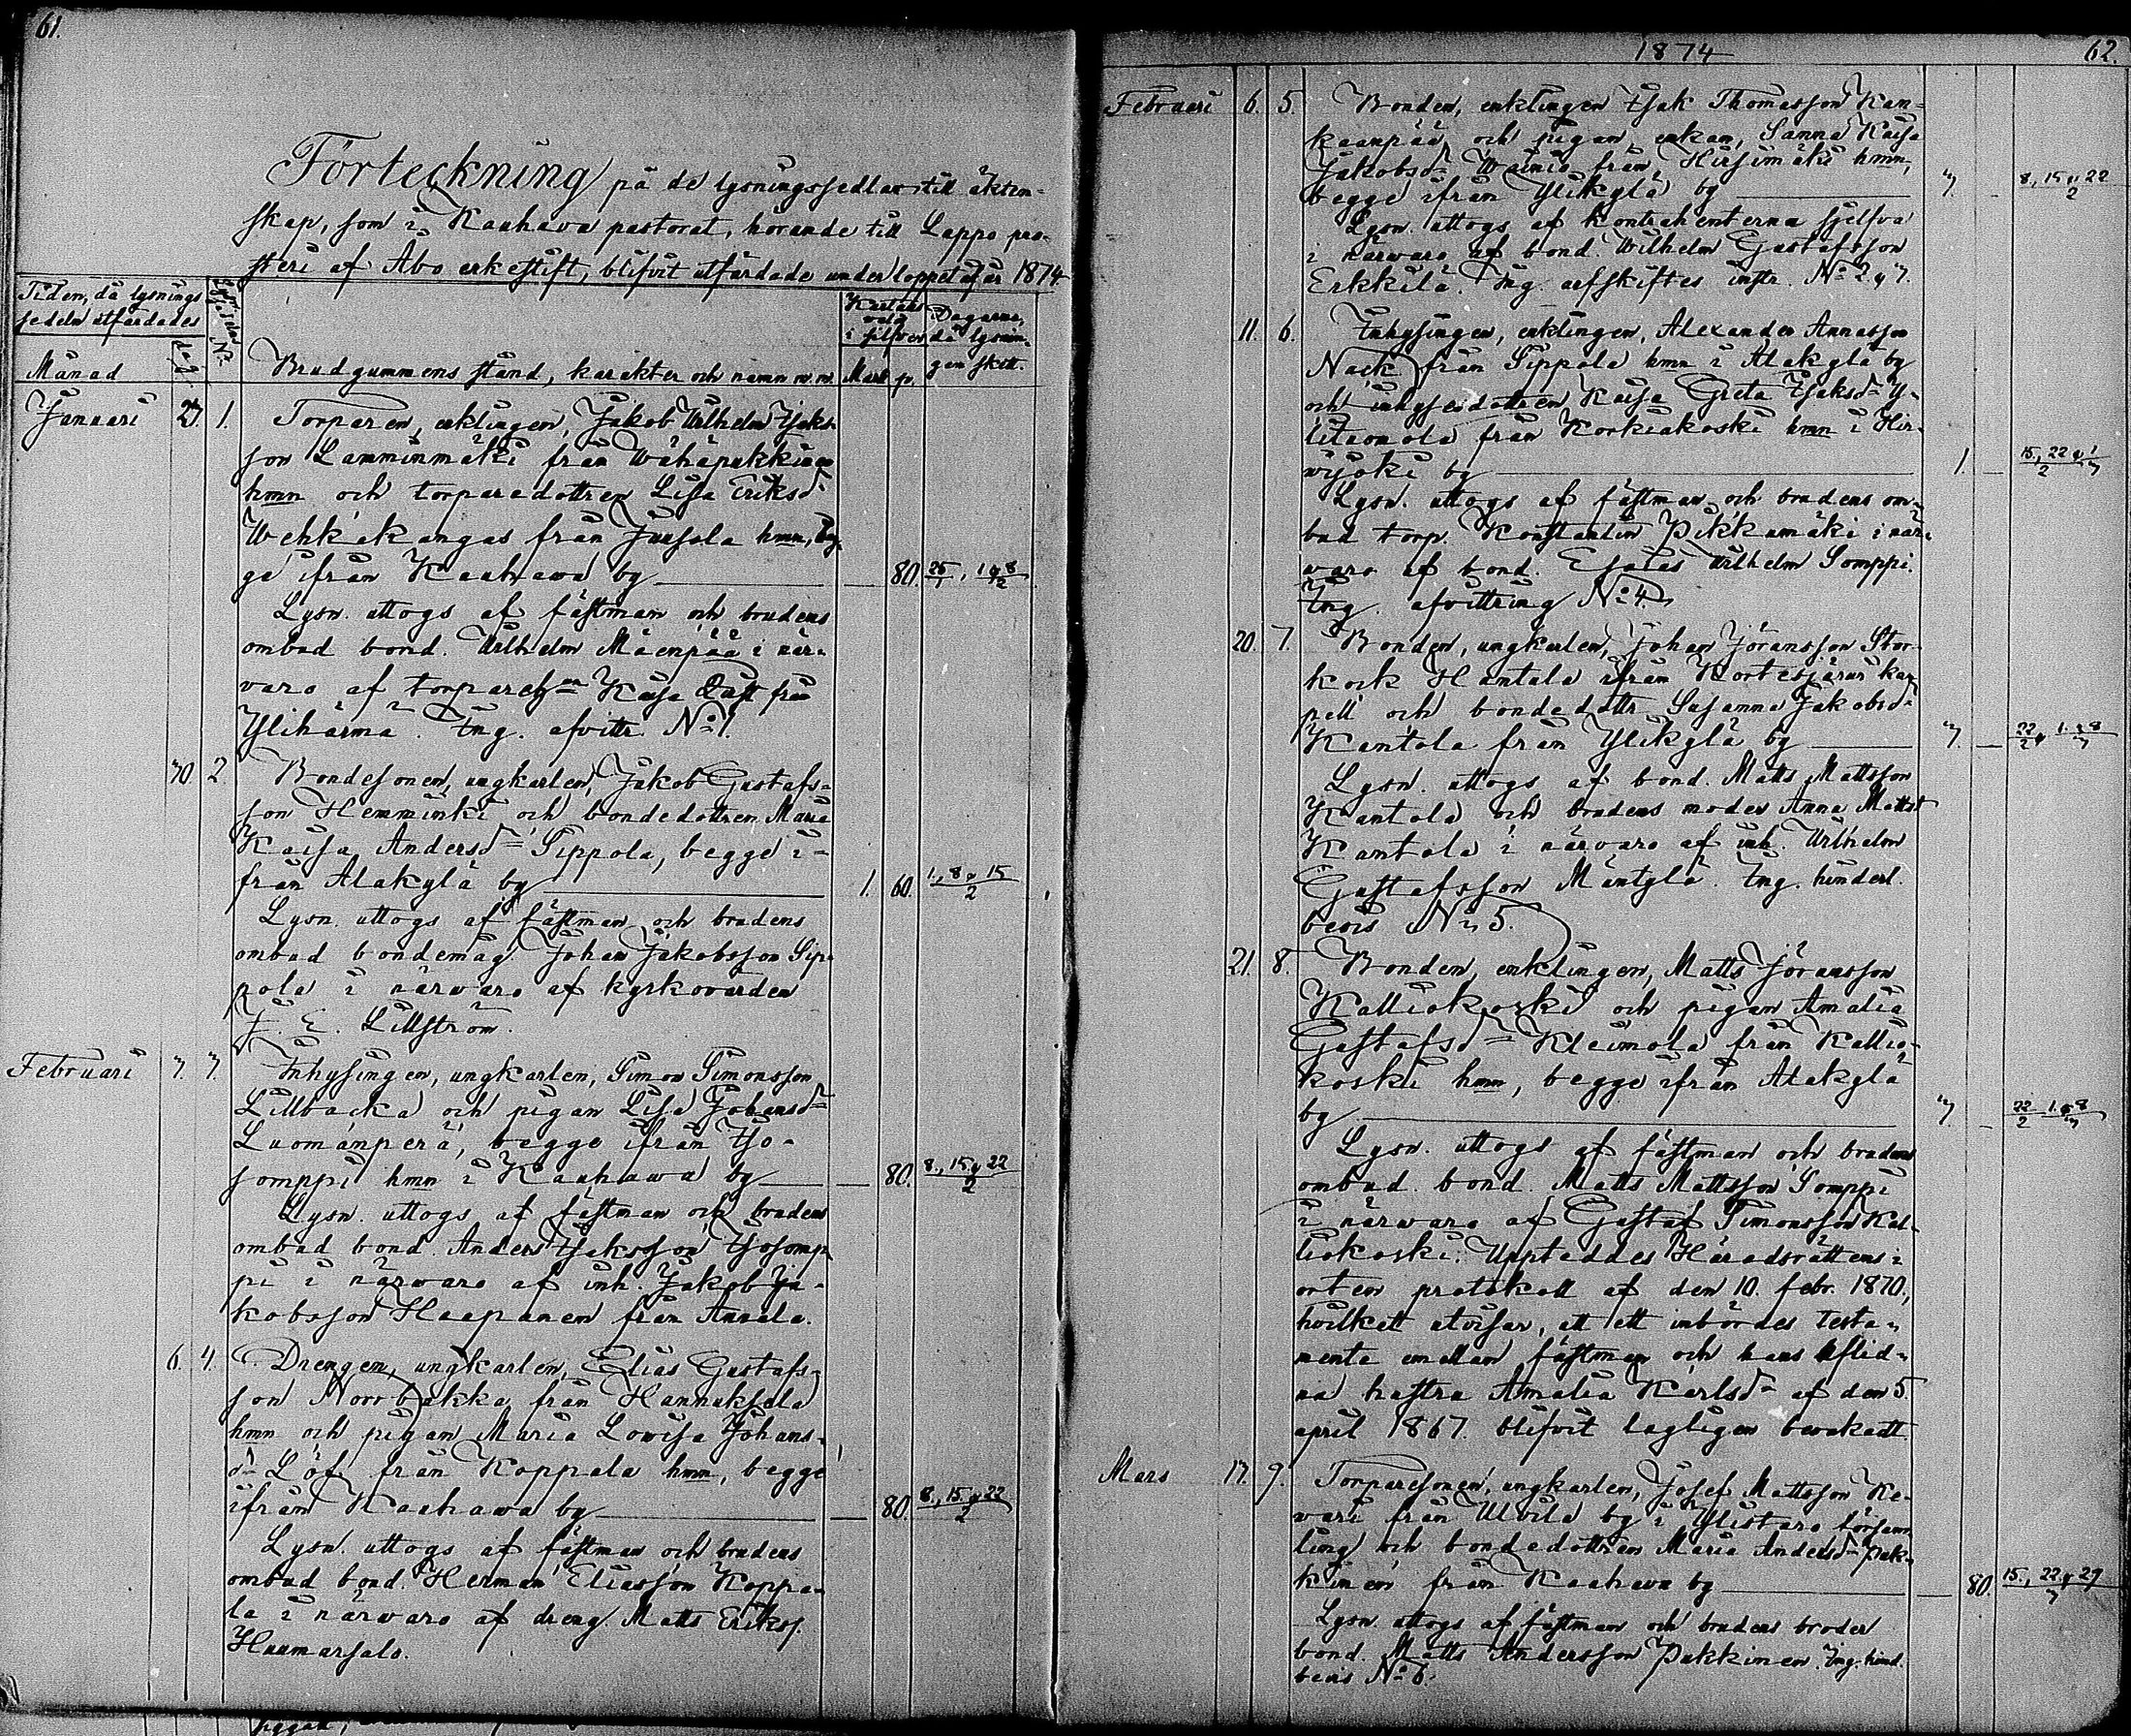 61.
Förteckning på de lysningssedlar till äkten-
skap, som i Kauhava pastorat, hörande till Lappo pro-
steri af Åbo erkestift, blifvit utfärdade under loppet af år 1874.
Tiden, då lysnings
sedeln utfärdades
Månad
dag
No
Brudgummens stånd, karakter och namn m. m.
i silfver
Mark p.
Dagarne,
då lysnin-
gen skett.
Januari 1.
Torparen, enklingen, Jakob Wilhelm Isaks-
son Lamminmäki från Wähäpukkinen
hmn och torparedottren Lisa Eriksd-
Wehkakangas från Juusola hmn, beg-
ge ifrån Kauhawa by — 80. 25/1, 1 & 8/2
Lysn. uttogs af fästman och brudens
ombud bond. Wilhelm Mäenpää i när-
varo af Kaisa från
Ylihärmä. Ing. afvittr. No 1.
30. 2. Bondesonen, ungkarlen, Jakob Gustafs-
son Hemminki och bondedottren Maria
Kaisa Andersd= Sippola, begge i-
från Alakylä by 1. 60. 1, 8 & 15/2
Lysn. uttogs af fästman och brudens
ombud bondemåg Johan Jakobsson Sip-
pola i närwaro af kyrkovärden
J. E. Lillström.
Februari 3. 3. Inhysingen, ungkarlen, Simon Simonsson
Lillbacka och pigan Lisa Johansd=
Luomanperä, begge ifrån Iso-
somppi hmn i Kauhawa by — 80. 8, 15 & 22/2
Lysn. uttogs af fästman och brudens
ombud bond. Anders Isaksson Isosomp-
pi i närwaro af inh. Jakob Ja-
kobsson Haapanen från Ansala.
6. 4. Drengen, ungkarlen, Elias Gustafs-
son Norrbakka från Hannuksela
hmn och pigan Maria Lowisa Johans-
d= Löf från Koppala hmn, begge
ifrån Kauhawa by — 80. 8, 15 & 22/2
Lysn. uttogs af fästman och brudens
ombud bond. Herman Eliasson Koppa-
la i närwaro af dreng. Matts Erikss.
Huumarsalo.
1874
62.
Februari 6. 5. Bonden, enklingen Isak Thomasson Kan-
kaanpää och pigan, enkan, Sanna Kaisa
Jakobsd= Wainio från Hirsimäki hmn,
begge ifrån Ylikylä by 3. 8, 15 & 22/2
Lysn. uttogs af kontrahenterna sjelfva
i närwaro af bond. Wilhelm Gustafsson
Erkkilä. Ing. arfskiftes instr. No 2 & 3.
11. 6. Inhysingen, enklingen, Alexander Annasson
Nack från Sippola hmn i Alakylä by
och inhysesdottren Kaisa Greta Isaksd= Y-
litaomola från Korkiakoski hmn i Hir-
wijoki by 1. — 15, 22/2 & 1/3
Lysn. uttogs af fästman och brudens om-
bud torp. Konstantin Pikkumäki i när-
waro af bond. Esaias Wilhelm Somppi.
Ing. afvittring No 4.
20. 7. Bonden, ungkarlen, Johan Jöransson Stor-
kock Hantula ifrån Kortesjärvi kap-
pell och bondedottr. Susanna Jakobsd-
Kantola från Ylikylä by 3. — 22/2, 1 & 8/3
Lysn. uttogs af bond. Matts Mattsson
Kantola och brudens moder Anna Mattsd
Kantola i närvaro af inh. Wilhelm
Gustafsson Mäntylä. Ing. hinderl.
bevis No 5.
21. 8. Bonden, enklingen, Matts Jöransson
Kalliokoski och pigan Amalia
Gustafsd= Kleimola från Kallio-
koski hmn, begge ifrån Alakylä
by 3. — 22/2 1 & 8/3
Lysn. uttogs af fästman och brudens
ombud bond. Matts Mattsson Somppi
i närwaro af Gustaf Simonsson Kal-
liokoski. Uppteddes Häradsrättens i
orten protokoll af den 10. febr. 1870.,
hvilket utvisar, att ett inbördes testa-
mente emellan fästman och hans aflid-
na hustru Amalia Karlsd- af den 5.
april 1867. blifvit lagligen bevakadt.
Mars 13. 9. Torparesonen, ungkarlen, Josef Mattsson Ke-
vari från Ulvila by i Ylistaro församm
ling och bondedottren Maria Andersd= Puk-
kinen från Kauhava by — 80. 15, 22 & 29/3
Lysn. uttogs af fästman och brudens broder
bond. Matts Andersson Pukkinen. Ing. hind.
bevis No 6.